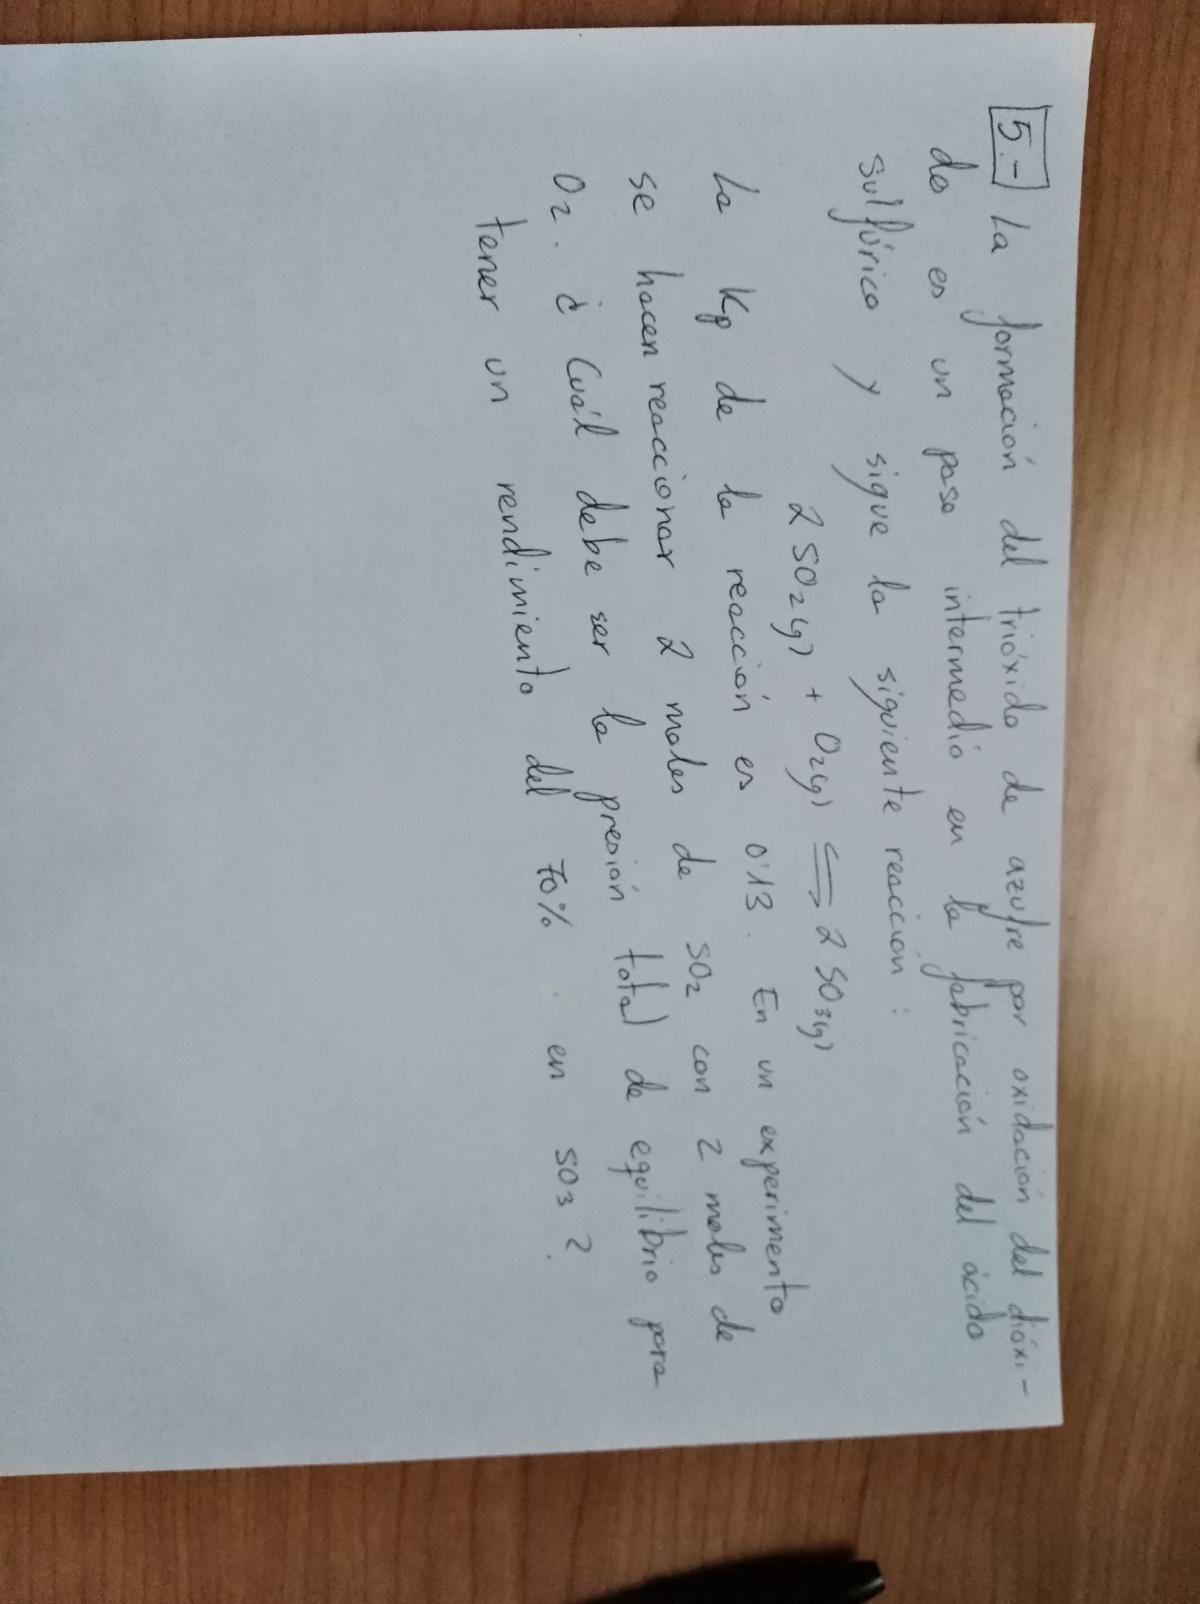 5.- La formación del trióxido de azufre por oxidación del dióxi-
do es un paso intermedio en la fabricación del ácido
sulfúrico y sigue la siguiente reacción:
2 SO2(g) + O2(g) ⇌ 2 SO3(g)
La Kp de la reacción es 0'13. En un experimento
se hacen reaccionar 2 moles de SO2 con 2 moles de
O2. ¿Cuál debe ser la presión total de equilibrio para
tener un rendimiento del 70% en SO3?